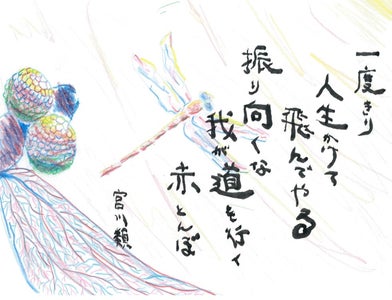 一度きり
人生かけて
飛んでやる
振り向くな
我が道を行く
赤とんぼ
宮川類